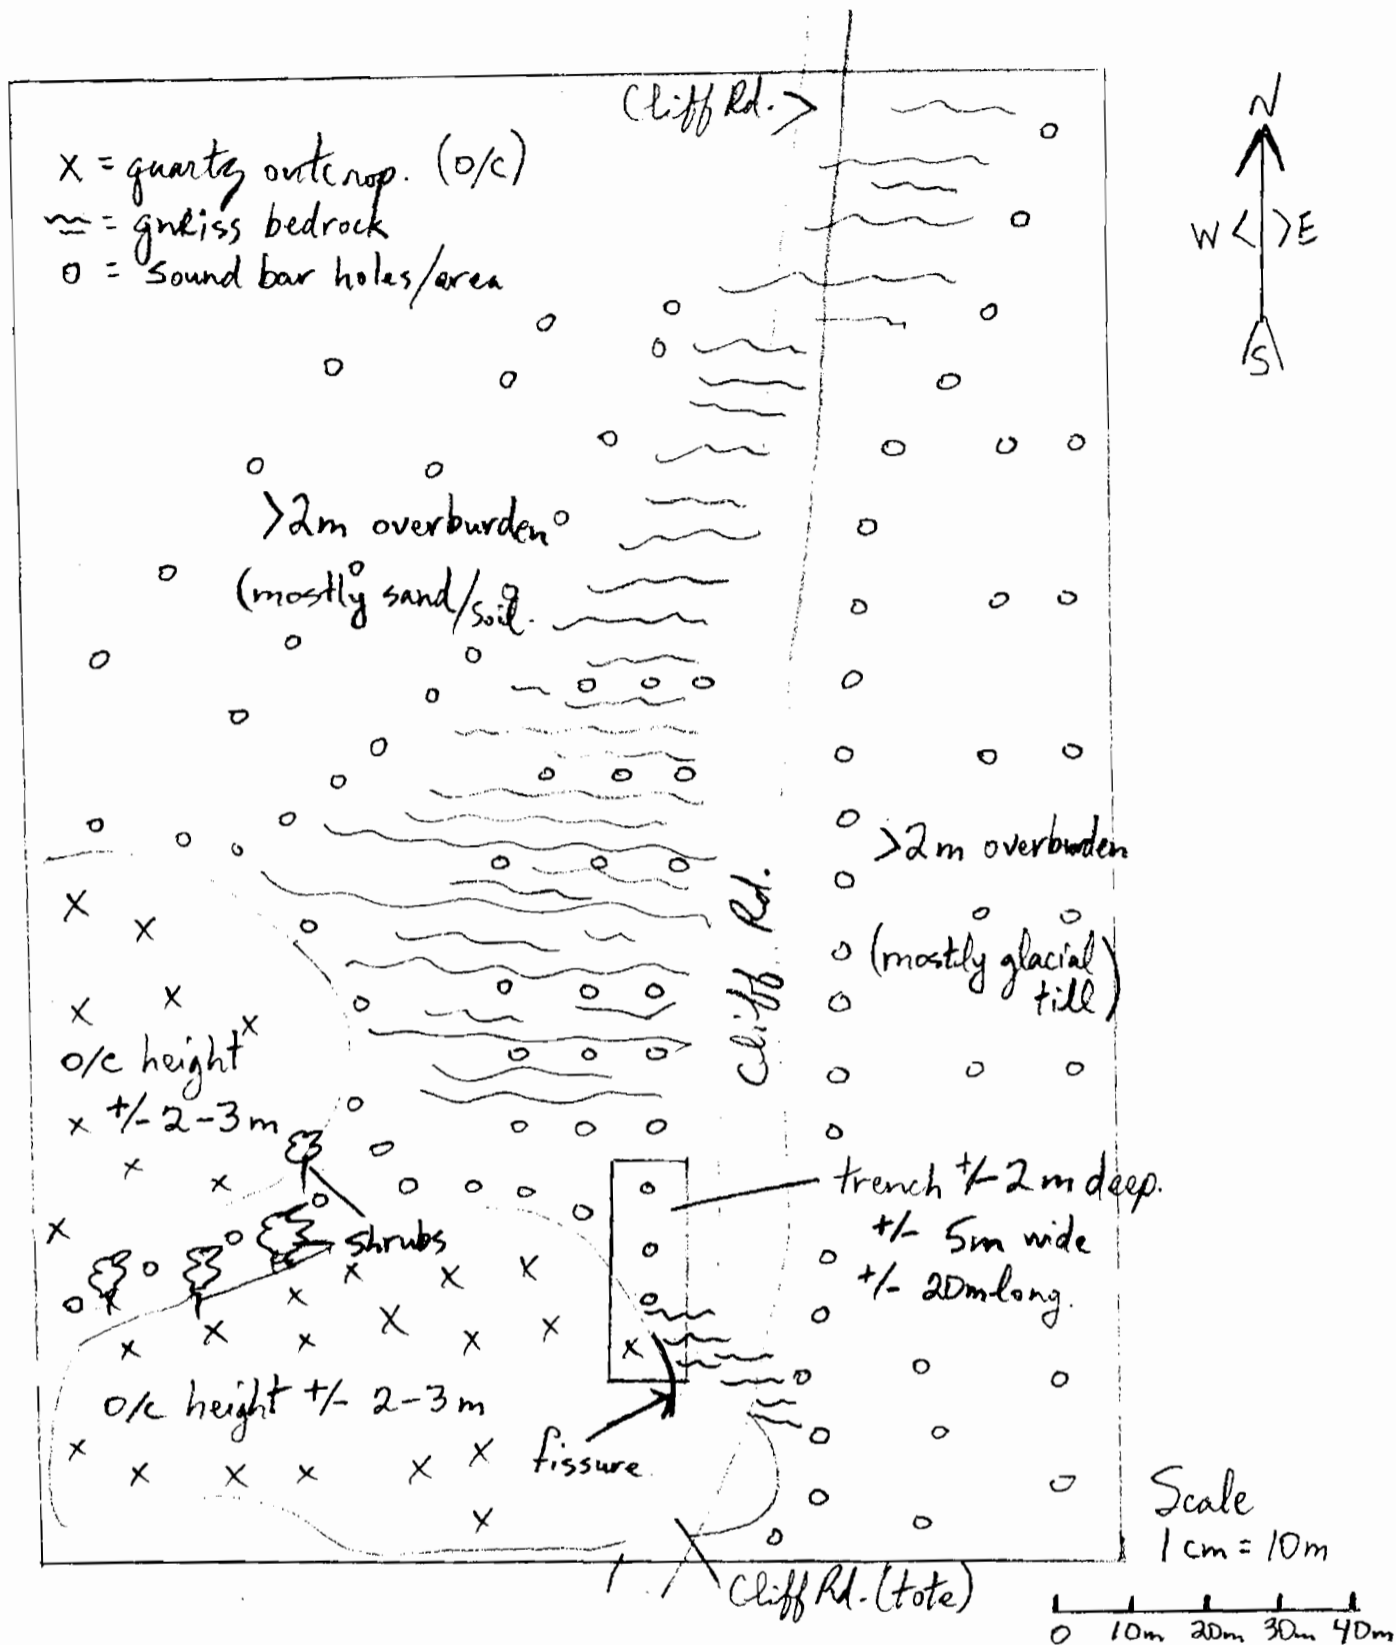 Cliff Rd. >
N
W < > E
S
X = quartz outcrop. (O/C)
≈ = gneiss bedrock
O = sound bar holes/area
>2m overburden
(mostly sand/soil.
Cliff Rd.
>2m overburden
(mostly glacial till)
o/c height
+/- 2-3m
shrubs
trench +/- 2m deep.
+/- 5m wide
+/- 20m long.
o/c height +/- 2-3m
fissure.
Cliff Rd. (tote)
Scale
1 cm = 10m
0 10m 20m 30m 40m